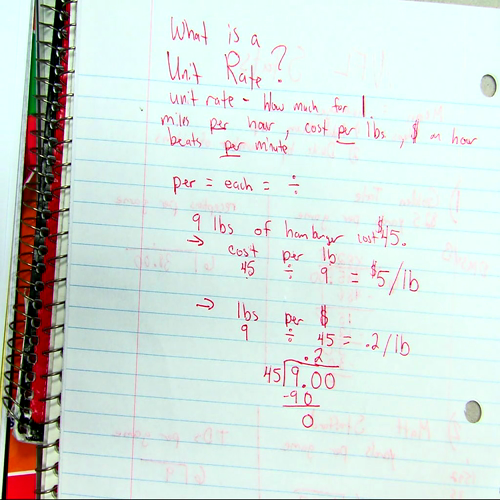 What is a
Unit Rate?
unit rate - How much for 1.
miles per hour, cost per lbs, $ an hour
beats per minute
per = each = ÷
9 lbs of hamburger cost $45.
→ cost per lb
45 ÷ 9 = $5/lb
→ lbs per $ :
9 ÷ 45 = .2/lb
.2
45 9.00
-90
0